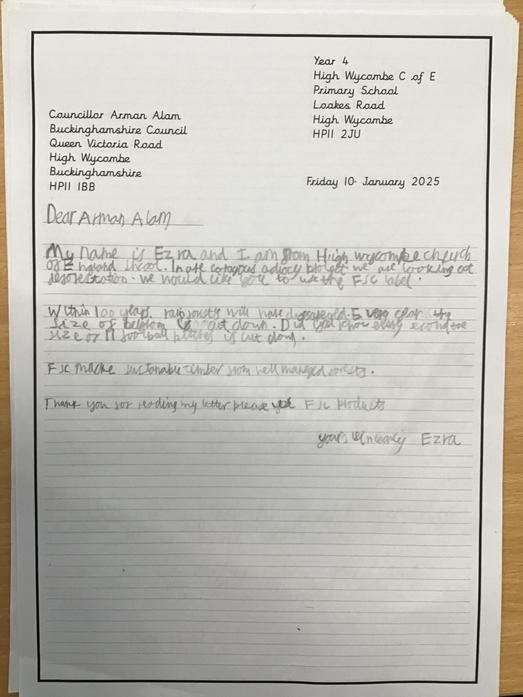 Year 4
High Wycombe C of E
Primary School
Loakes Road
High Wycombe
HP11 2JU
Councillor Arman Alam
Buckinghamshire Council
Queen Victoria Road
High Wycombe
Buckinghamshire
HP11 1BB
Friday 10 January 2025
Dear Arman Alam
My name is Ezra and I am from High wycombe church
of England we are looking at
deforestation. we would like you to use the FSC label.
Within 100 years, will have Every year the
size of is cut down. Did you know every the
size of football is cut down.
FSC make sustainable timber from well managed forests.
Thank you for reading my letter please use FSC products
yours Ezra